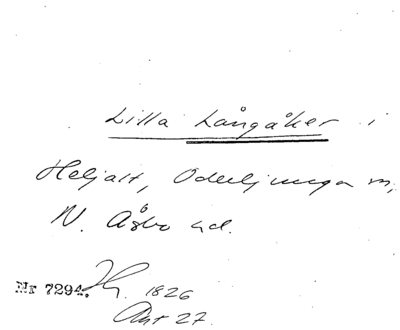 Lilla Långåker i
Heljalt, Oderljunga sn,
N. Åsbo hd.
Nr 7294. 1826
Akt 27